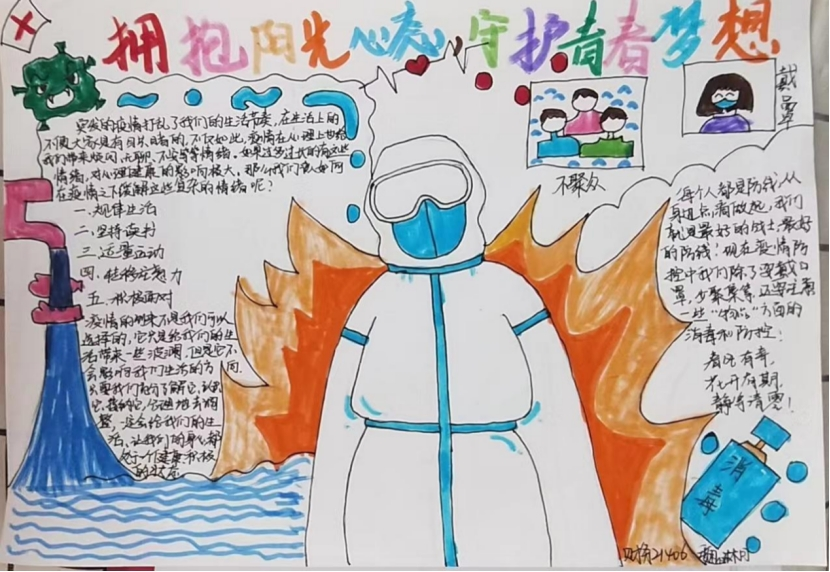 拥抱阳光心态，守护青春梦想
戴口罩
不聚众
突发的疫情打乱了我们的生活节奏，在生活上的
不便大家是有目共睹的，不仅如此，疫情在心理上也给
我们带来烦闷、无聊、不安等等情绪，如果过多过大的有这些
情绪，对心理健康的影响极大，那么我们要如何
在疫情之下缓解这些复杂的情绪呢？
一、规律生活
二、坚持读书
三、适量运动
四、转移注意力
五、积极面对
疫情的到来不是我们可以
选择的，它只是给我们的生
活带来一些波澜，但是它不
会影响我们生活的方向，
只要我们去了解它，认识
它，接纳它，合理地去调
整，适合我们的生
活，让我们的身心都
处于一个健康积极
的状态
每个人都是防线，从
身边点滴做起，我们
就是最好的战士，最好
的防线！现在疫情防
控中我们除了要戴口
罩，少聚集等，还要注意
一些“物品”方面的
消毒和防控！
春已有奔，
花开有期，
静待清零！
消毒
21406